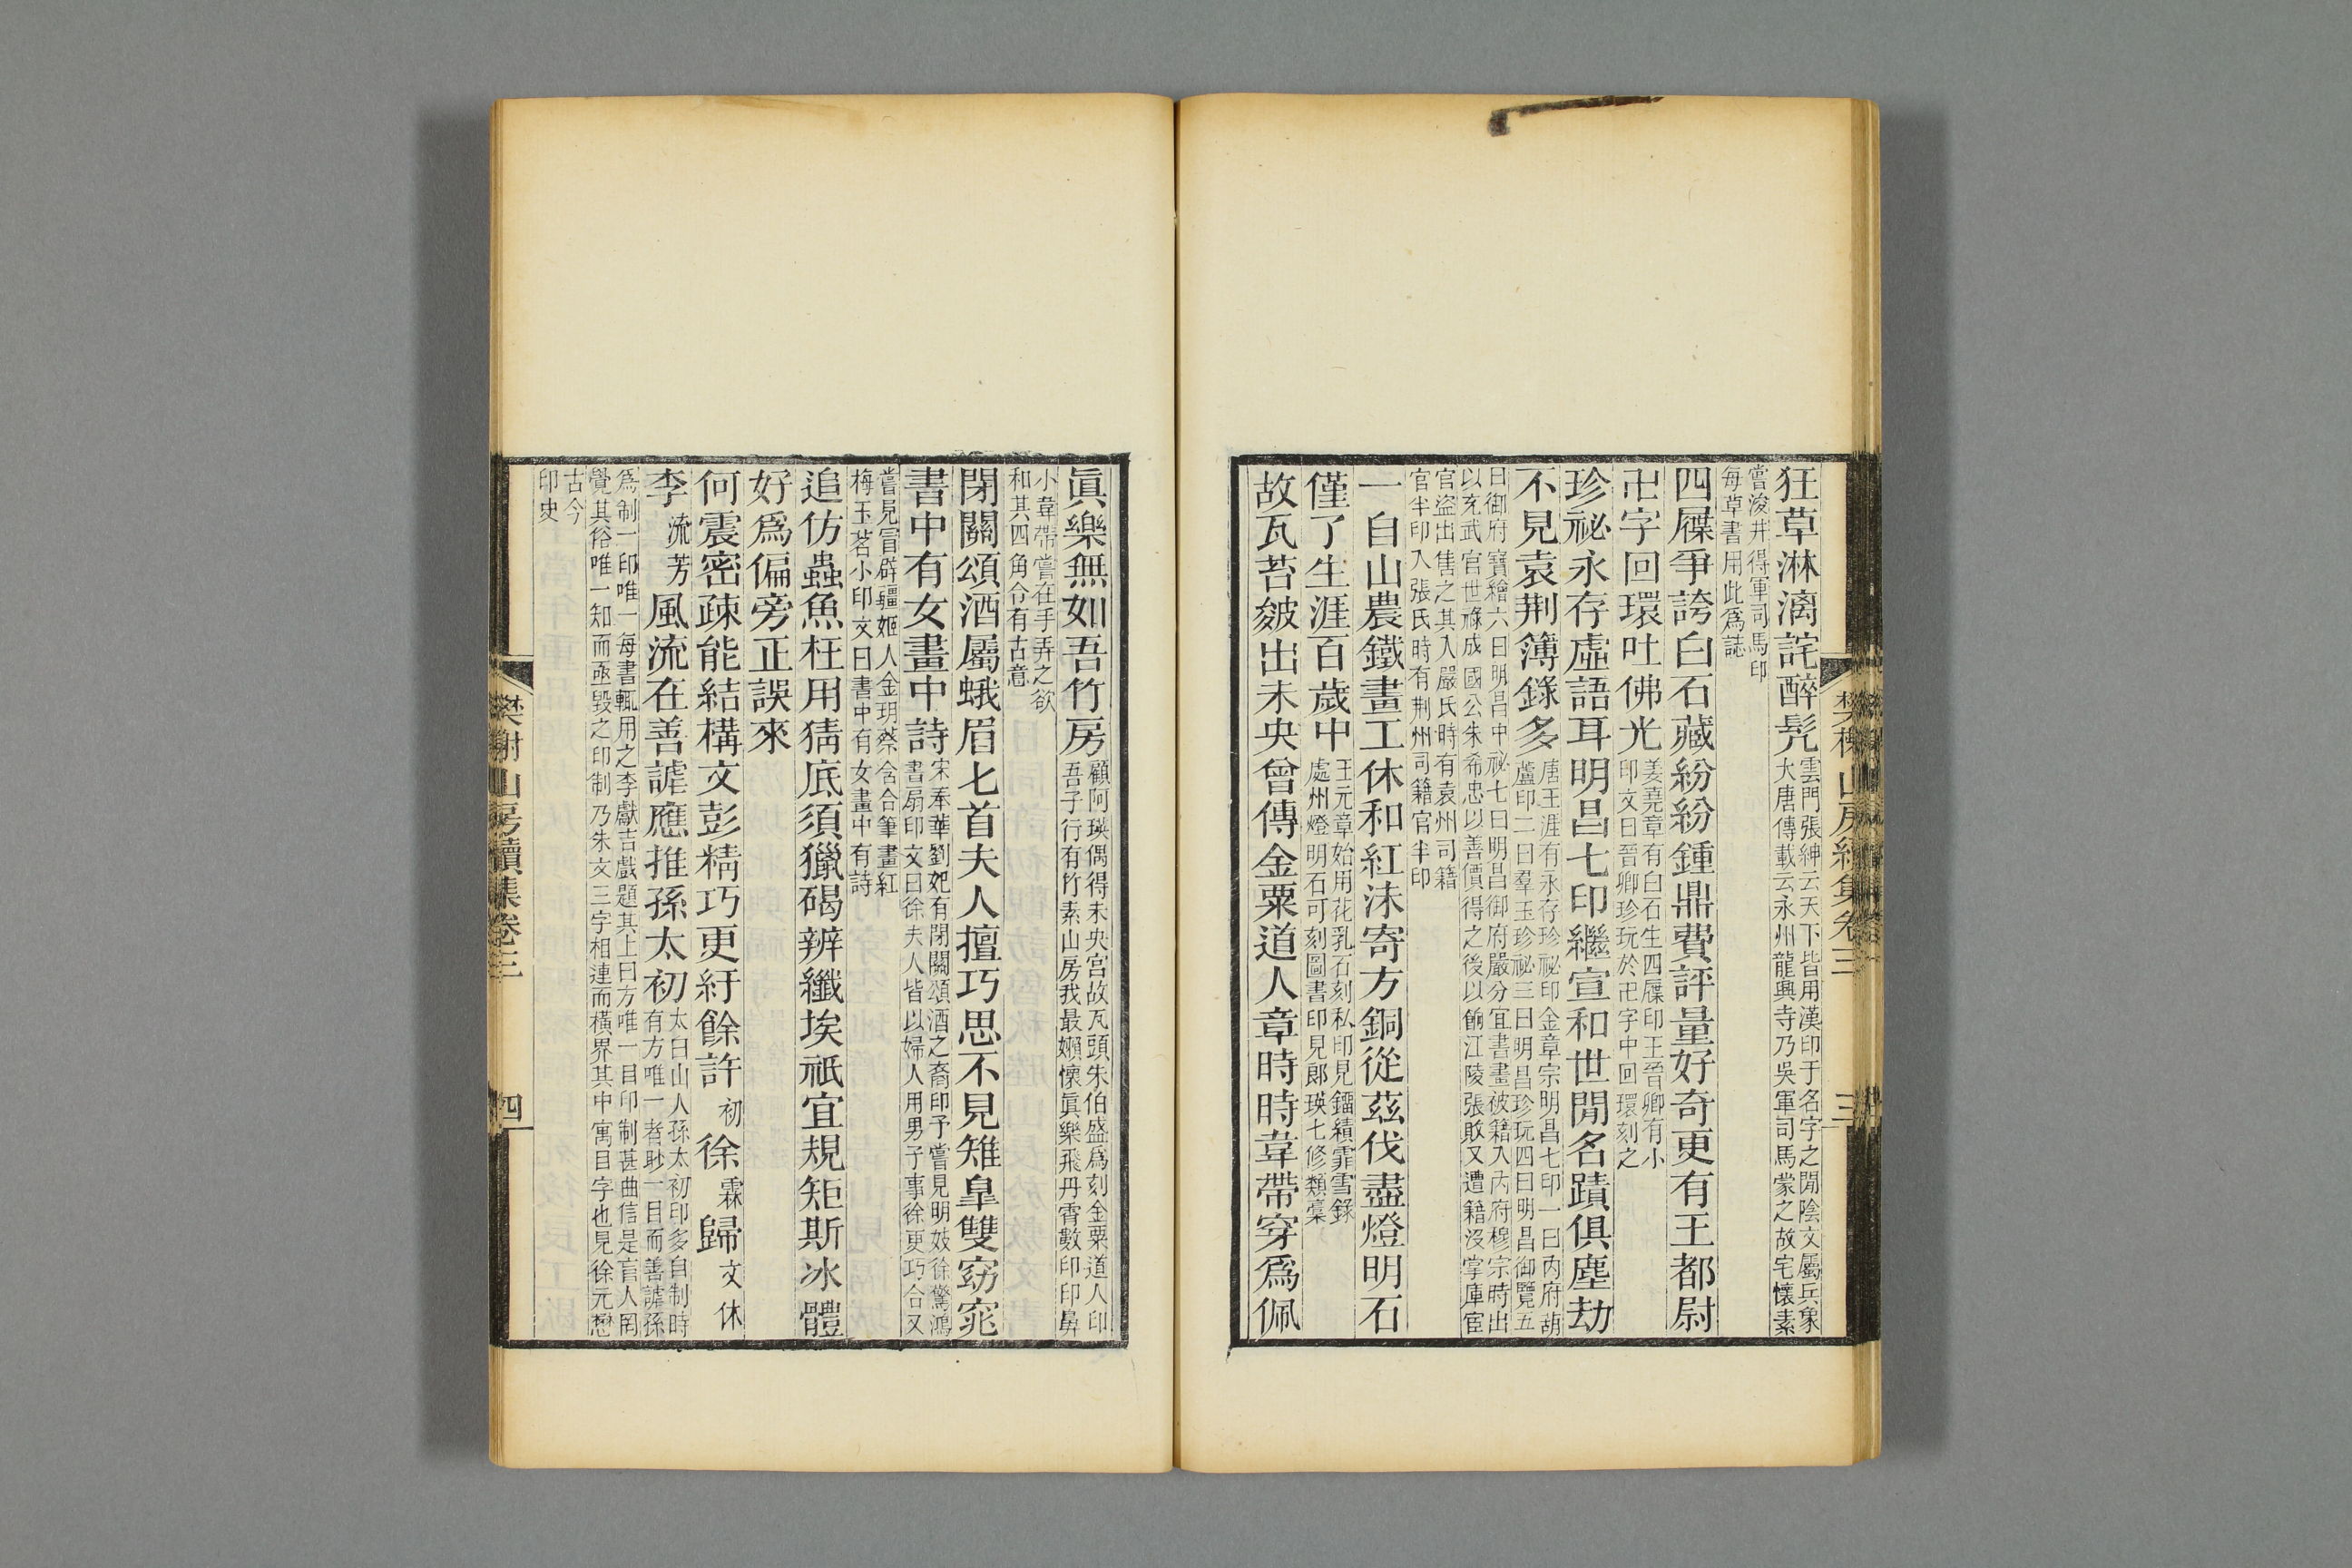 狂草淋漓詫醉髠雲門張紳云天下皆用漢印于名字之閒陰文屬兵象
大唐傳載云永州龍興寺乃吳軍司馬蒙之故宅懷素
嘗浚井得軍司馬印
每草書用此爲誌
四屧爭誇白石藏紛紛鍾鼎費評量好奇更有王都尉
卍字回環吐佛光姜堯章有白石生四屧印王晉卿有小
印文曰晉卿珍玩於卍字中回環刻之
珍祕永存虛語耳明昌七印繼宣和世閒名蹟俱塵劫
不見袁荆簿錄多唐王涯有永存珍祕印金章宗明昌七印一曰內府葫
蘆印二曰羣玉珍祕三曰明昌珍玩四曰明昌御覽五
曰御府寶繪六曰明昌中祕七曰明昌御府嚴分宜書畫被籍入內府穆宗時出
以充武官世祿成國公朱希忠以善價得之後以餉江陵張敗又遭籍沒掌庫宦
官盜出售之其入嚴氏時有袁州司籍
官半印入張氏時有荆州司籍官半印
一自山農鐵畫工休和紅沬寄方銅從茲伐盡燈明石
僅了生涯百歲中王元章始用花乳石刻私印見鐂績霏雪錄
處州燈明石可刻圖書印見郎瑛七修類稾
故瓦苔皴出未央曾傳金粟道人章時時韋帶穿爲佩
樊榭山房續集卷三
三
眞樂無如吾竹房顧阿瑛偶得未央宮故瓦頭朱伯盛爲刻金粟道人印
吾子行有竹素山房我最嬾懷眞樂飛丹霄數印印鼻
小韋帶嘗在手弄之欲
和其四角令有古意
閉關頌酒屬蛾眉七首夫人擅巧思不見雉皐雙窈窕
書中有女畫中詩宋奉華劉妃有閉關頌酒之裔印予嘗見明妓徐驚鴻
書扇印文曰徐夫人皆以婦人用男子事徐更巧合又
嘗見冒辟疆姬人金玥蔡含合筆畫紅
梅玉茗小印文曰書中有女畫中有詩
追仿蟲魚枉用猜底須獵碣辨纖埃祇宜規矩斯冰體
好爲偏旁正誤來
何震密疎能結構文彭精巧更紆餘許初徐霖歸文休
李流芳風流在善謔應推孫太初太白山人孫太初印多自制時
有方唯一者眇一目而善謔孫
爲制一印唯一每書輒用之李獻吉戲題其上曰方唯一目印制甚曲信是盲人罔
覺其俗唯一知而亟毀之印制乃朱文三字相連而橫界其中寓目字也見徐元懋
古今
印史
樊榭山房續集卷三
四